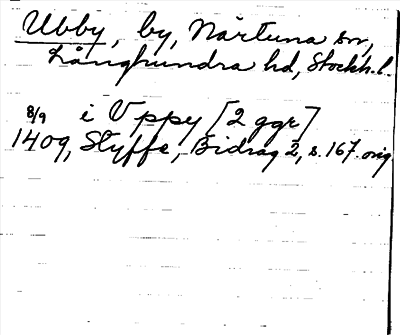 Ubby, by, Närtuna sn,
Långhundra hd, Stockh. l.
8/9 i Vppy [2 ggr]
1409, Styffe, Bidrag 2, s. 167. orig